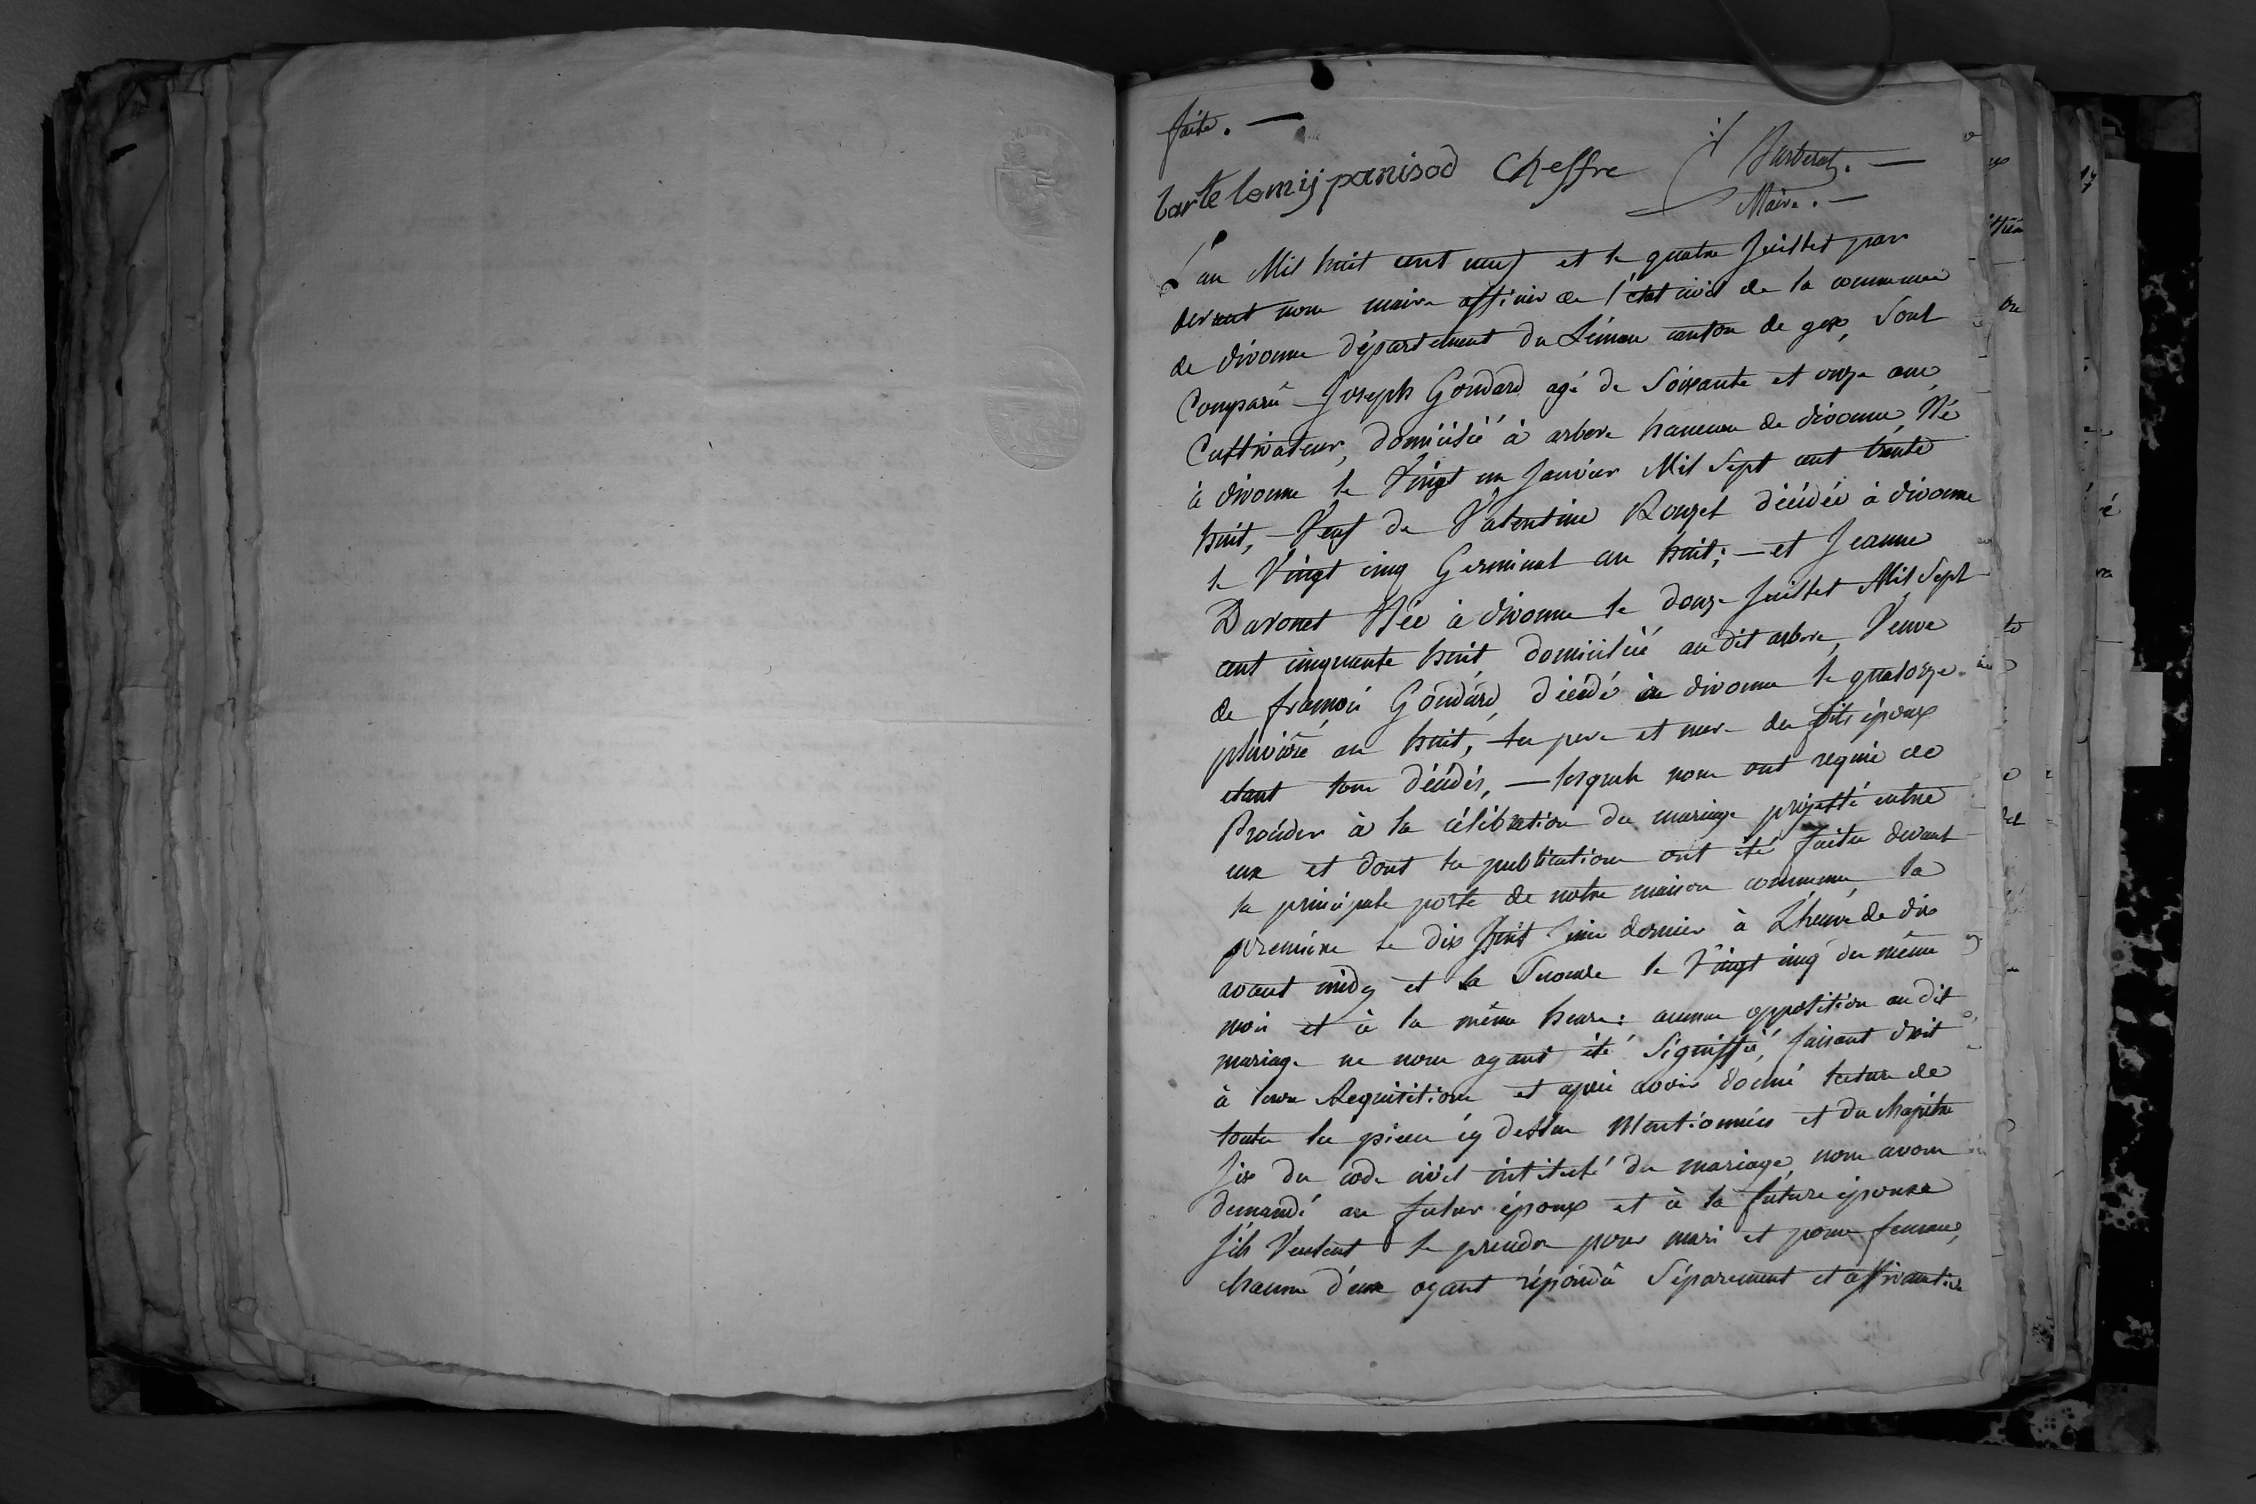 faite. —
bartelemij panisod Cheffre Barberat. —
Maire. —
L'an Mil huit cent neuf et le quatre Juillet par
devant nous maire officier de l'état civil de la commune
de divonne département du Léman canton de gex, Sont
Comparû Joseph Goudard agé de Soixante et onze ans,
Cultivateur, domicilié à arbere hameau de divonne, Né
à divonne le Vingt un Janvier Mil Sept cent trente
huit, — Veuf de Valentine Rouget décédée à divonne
le Vingt cinq Germinal an huit; — et Jeanne
Davonet Née à divonne le douze Juillet Mil Sept
cent cinquante huit domiciliée au dit arbere, Veuve
de françois Goudard, décédé à divonne le quatorze
pluviôse an huit, les pere et mere des dits époux
etant tous décédés, — lesquels nous ont requis de
Proceder à la célébration du mariage projetté entre
eux et dont les publications ont été faites devant
la principale porte de notre maison commune, la
premiere le dix huit Juin dernier à L'heure de dix
avant midy et la Seconde le Vingt cinq du même
mois et à la même heure: aucune opposition au dit
mariage ne nous ayant été Signiffié, faisant droit
à leur Requisition et après avoir donné lecture de
toutes les pieces cy dessus Mentionnées et du chapitre
Six du code civil intitulé du mariage, nous avons
demandé au futur époux et à la future épouse
S'ils Veulent se prendre pour mari et pour femme,
chacun d'eux ayant répondû Séparement et affirmative